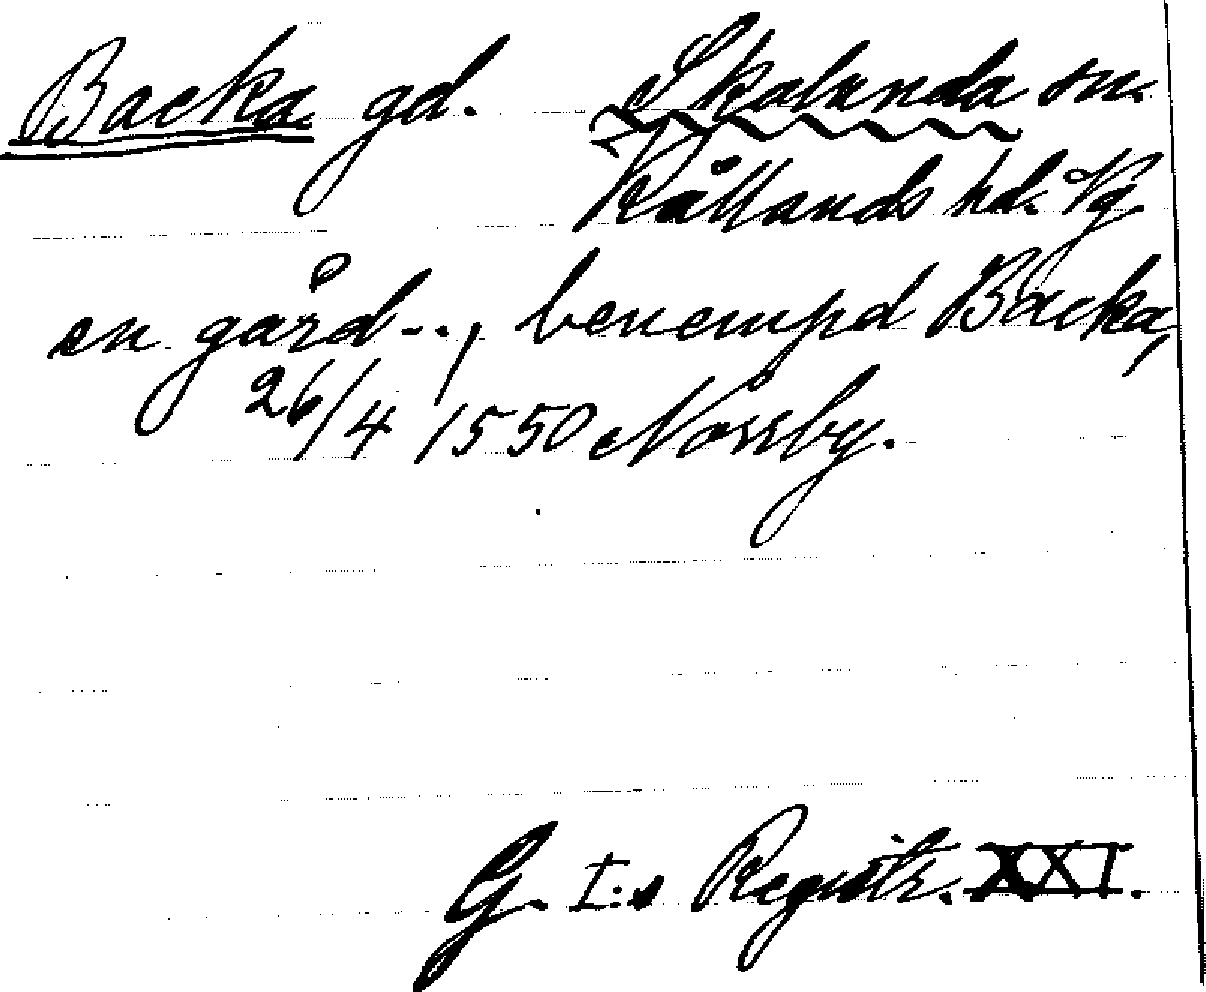 Backa gd. Skalunda sn.
Kållands hd. Vg
en gård--, benempd Backa,
26/4 1550 Nossby.
G. I:s Registr. XXI.